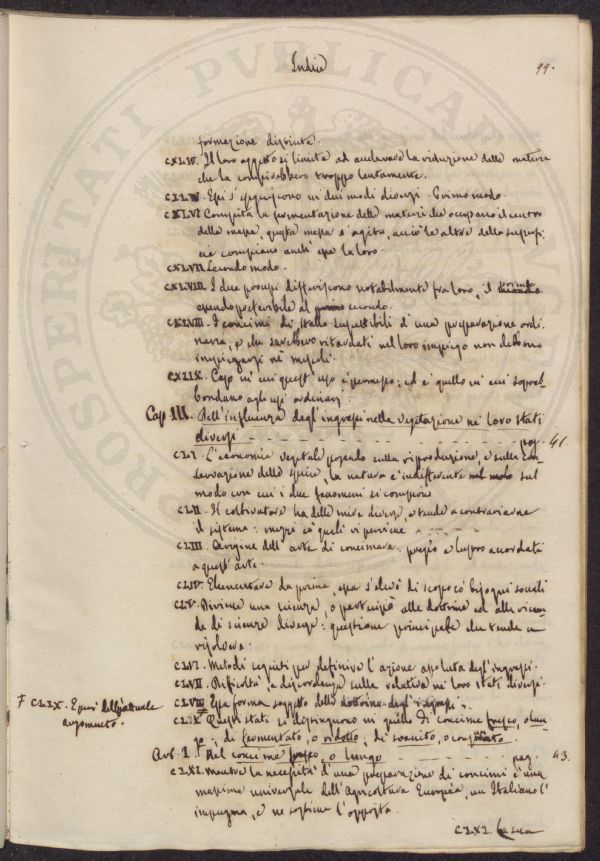 Indice
99.
formazione distinta.
CXLIV. Il loro oggetto si limita ad accelerare la riduzione delle materie
che la compirebbero troppo lentamente.
CXLV. Essi s'eseguiscono in due modi diversi. Primo modo.
CXLVI. Compita la fermentazione delle materie che occupano il centro
della massa, questa massa s'agita, acciò le altre della superfi-
cie compiano anch'esse la loro.
CXLVII. Secondo modo.
CXLVIII. I due processi differiscono notabilmente fra loro, il
essendo preferibile al secondo.
I concimi di stalla suscettibili d'una preparazione ordi-
naria, e che sarebbero ritardati nel loro impiego non debbono
impiegarsi ne'
CXLIX. Casi in cui quest'uso è permesso: ed è quello in cui soprab-
bondano agli usi ordinarj.
Cap. III. Dell'influenza degl'ingrassi nella vegetazione ne' loro stati
diversi pag. 41.
CLI. L'economia vegetale posando sulla riproduzione, e sulla con-
servazione delle specie, la natura è indifferente sul
modo con cui i due fenomeni si compiono
CLII. Il coltivatore ha delle mire diverse, e tende a contrariarne
il sistema: mezzi co' quali vi perviene
CLIII. Origine dell'arte di concimare: pregio e lustro accordati
a quest'arte.
CLIV. Elementare da prima, essa s'elevò di scopo co' bisogni sociali
CLV. Divisione una scienza, o partecipò alle dottrine ed alle vicen-
de di scienze diverse: questione principale che tende a
risolvere.
CLVI. Metodi seguiti per definire l'azione assoluta degl'ingrassi.
CLVII. Difficoltà, e discordanza sulla relativa ne' loro stati diversi.
CLVIII. Essa forma soggetto della dottrina degl'ingrassi.
F CLIX. Epoca dell'attuale
argomento.
CLX. Questi stati si distinguono in quello di concime fresco, o lun-
go; di fermentato, o ridotto; di
Art. I. Del concime fresco, o lungo pag. 43.
CLXI. Mentre la necessità d'una preparazione di concimi è una
massima universale dell'Agricoltura Europea, un Italiano l'
impugna, e ne sostiene l'opposta.
CLXI. La sua